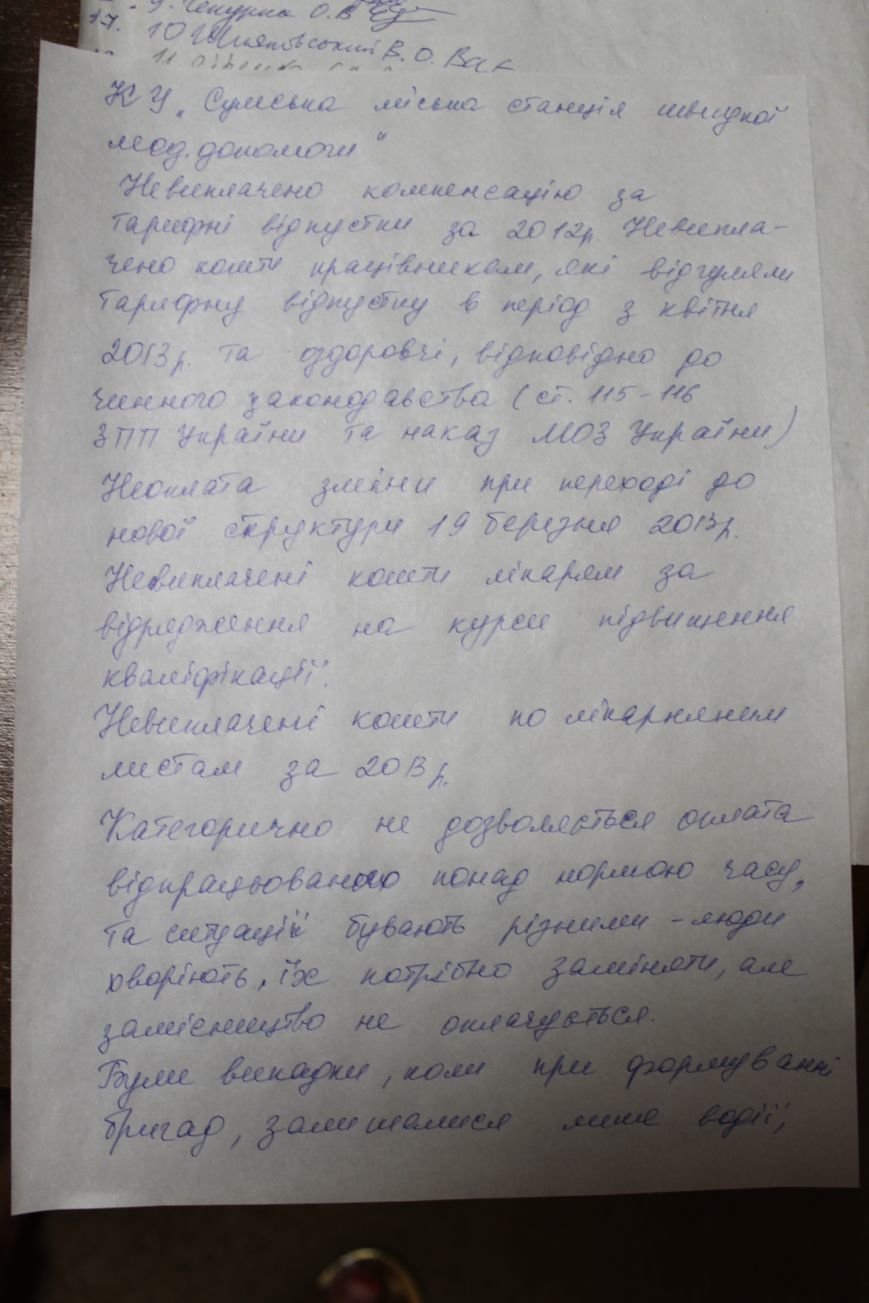 17. 10 В.О.
КУ „Сумська міська станція швидкої
мед. допомоги"
Невиплачено компенсацію за
тарифні відпустки за 2012р. Невипла-
чено кошти працівникам, які відгуляли
тарифну відпустку в період з квітня
2013р. та оздоровчі, відповідно до
чинного законодавства (ст. 115-116
ЗПП України та наказ МОЗ України)
Неоплата зміни при переході до
нової структури 19 березня 2013р.
Невиплачені кошти лікарям за
відрядження на курси підвищення
кваліфікації.
Невиплачені кошти по лікарняним
листам за 2013р.
Категорично не дозволяється оплата
відпрацьованого понад нормою часу,
та ситуації бувають різними - люди
хворіють, їх потрібно заміняти, але
замісництво не оплачується.
Були випадки, коли при формуванні
бригад, залишалися лише водії,